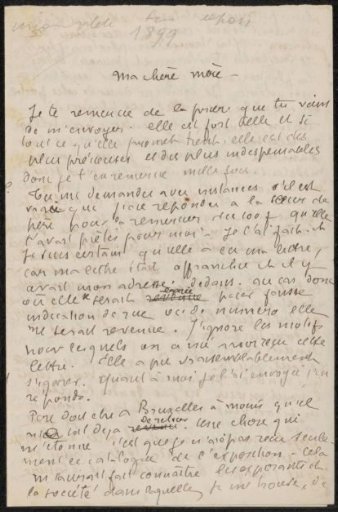 1899
Ma chère mère –
Je te remercie de la que tu viens
de m'envoyer. elle est fort belle et si
tout ce qu'elle promet tient elle est des
plus précieuses et des plus indispensables
donc je t'en remercie mille fois.
Tu me demandes avec instances s'il est
vrai que j'aie répondu à la sœur du
père pour la remercier du qu'elle
t'avait prêtés pour moi – Je l'ai fait et
je suis certain qu'elle a eu ma lettre,
car ma lettre était affranchie et il y
avait mon adresse dedans. au cas donc
où elle serait pour fausse
indication de rue ou de numéro elle
me serait revenue. J'ignore les motifs
pour lesquels on a reçu cette
lettre. Elle a pu vraisemblablement
s'égarer. Quant à moi je l'ai envoyée j'en
réponds.
Père doit être à Bruxelles à moins qu'il
soit déjà de retour. Une chose qui
m'étonne c'est que je n'ai pas reçu seule
ment ce catalogue de l'exposition – Cela
m'aurait fait connaître les exposants de
la société dans laquelle je me trouve, de